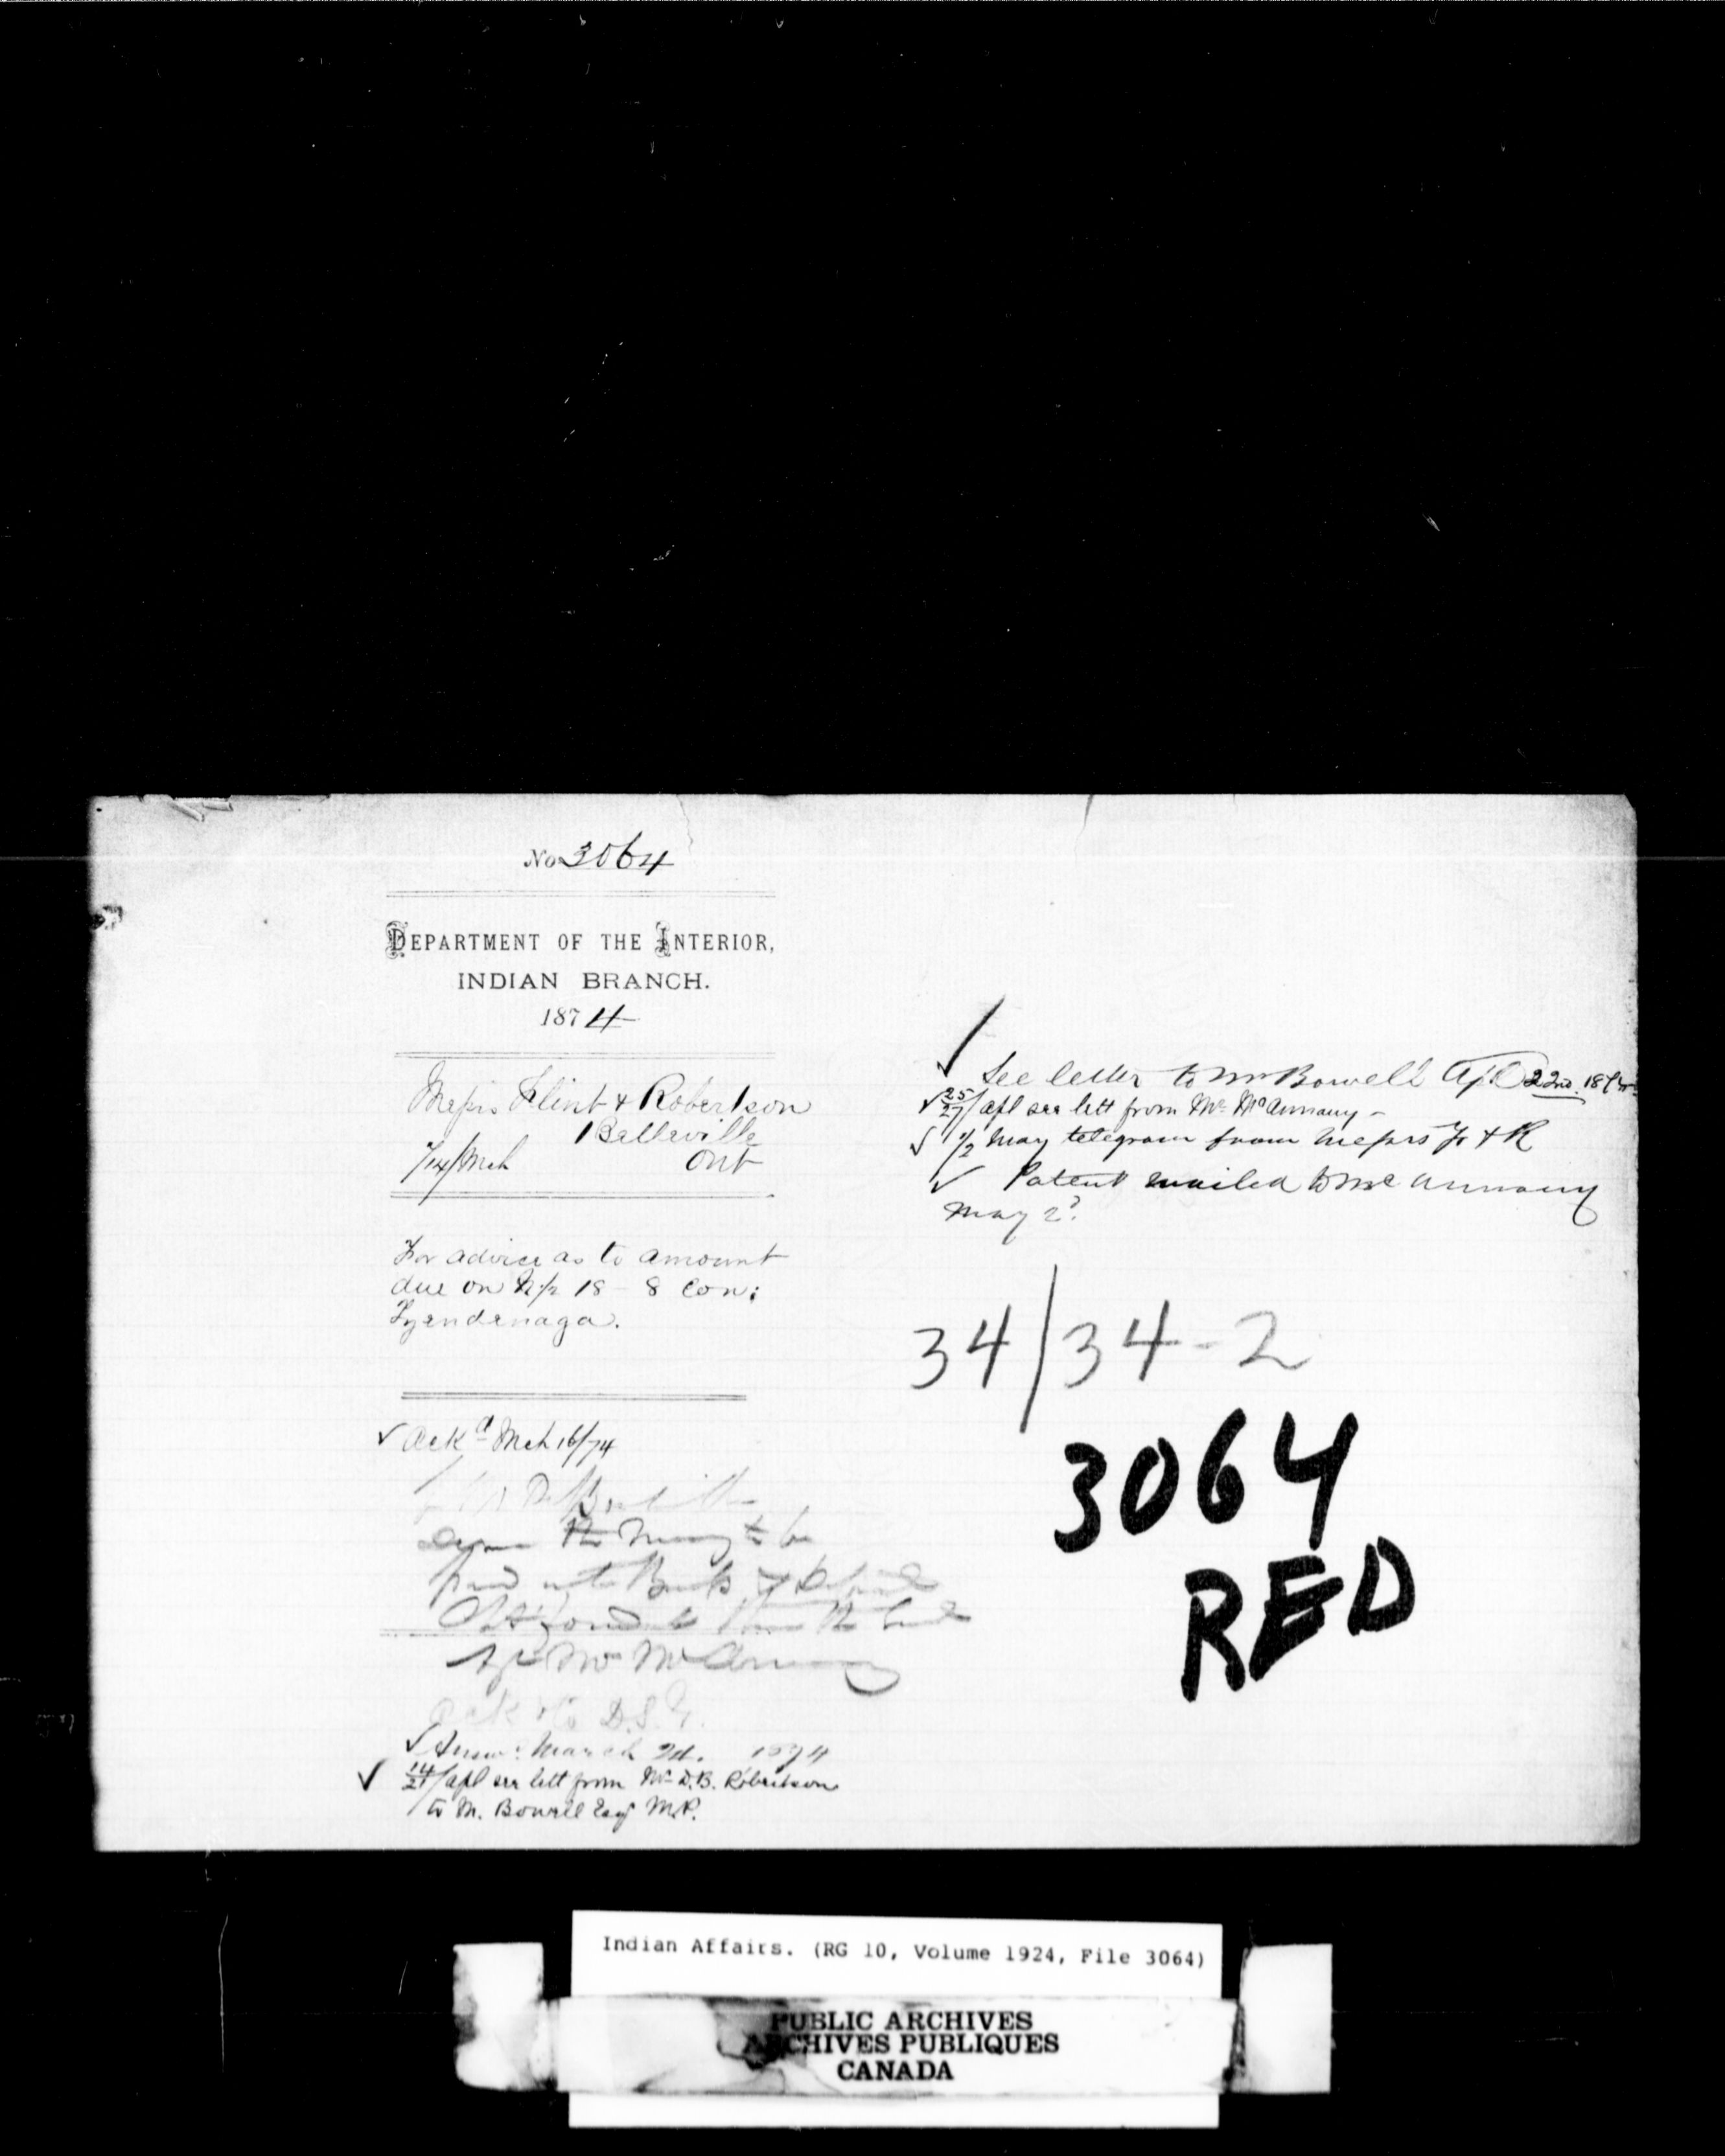 No 3064
DEPARTMENT OF THE INTERIOR,
INDIAN BRANCH.
1874
Messrs Flint & Robertson
Belleville
Ont
/14/Mch
For advice as to amount
due on N 1/2 18 - 8 Con:
Tyendenaga.
✓ Ackd Mch 16/74
the money to be
paid into Bank of
Mr McAnnany
Ack to D.S.G.
✓ Answ: March 24. 1874
✓ 14/21/apl see lett from Mr D.B. Robertson
to M. Bowell Esq M.P.
✓ See letter to Mr Bowell Apl 22nd. 1874
✓ 25/27/apl see lett from Mr McAnnany -
✓ 1/2 May telegram from Messrs F & R
✓ Patent mailed to McAnnany
May 2d.
34/34-2
3064
RED
Indian Affairs. (RG 10, Volume 1924, File 3064)
PUBLIC ARCHIVES
ARCHIVES PUBLIQUES
CANADA